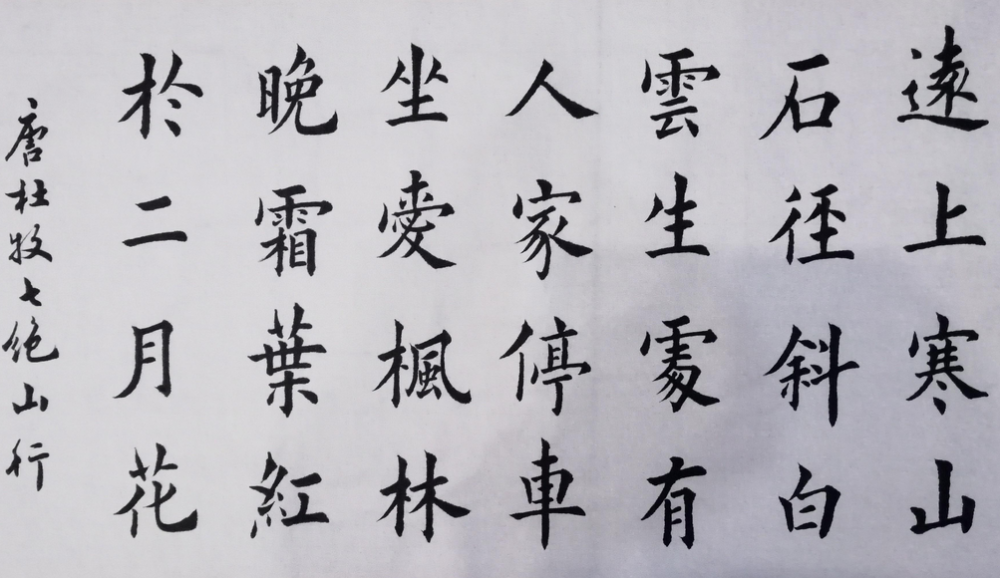 遠上寒山
石徑斜白
雲生處有
人家停車
坐愛楓林
晚霜葉紅
於二月花
唐杜牧七絕山行